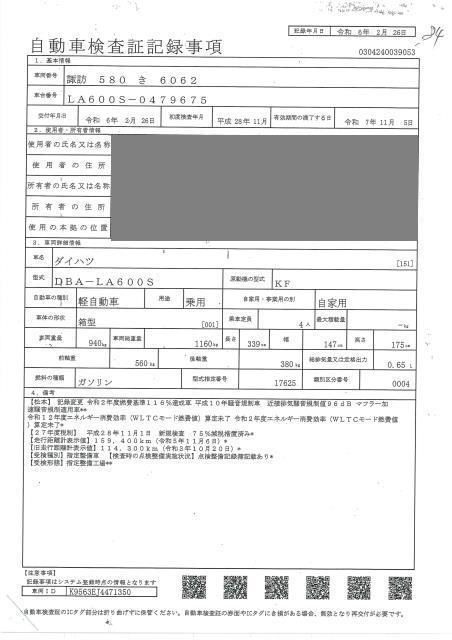 記録年月日 令和 6年 2月 26日
自動車検査証記録事項
0304240039053
1. 基本情報
車両番号 諏訪 580 き 6062
車台番号 LA600S-0479675
交付年月日 令和 6年 2月 26日 初度検査年月 平成 28年 11月 有効期間の満了する日 令和 7年 11月 5日
2. 使用者・所有者情報
使用者の氏名又は名称
使用者の住所
所有者の氏名又は名称
所有者の住所
使用の本拠の位置
3. 車両詳細情報
車名 ダイハツ [151]
型式 DBA-LA600S 原動機の型式 KF
自動車の種別 軽自動車 用途 乗用 自家用・事業用の別 自家用
車体の形状 箱型 [001] 乗車定員 4人 最大積載量 -kg
車両重量 940kg 車両総重量 1160kg 長さ 339cm 幅 147cm 高さ 175cm
前軸重 560kg 後軸重 380kg 総排気量又は定格出力 0.65L
燃料の種類 ガソリン 型式指定番号 17625 類別区分番号 0004
4. 備考
【松本】 記録変更 令和2年度燃費基準115%達成車 平成10年騒音規制車 近接排気騒音規制値96dB マフラー加
速騒音規制適用車**
令和12年度エネルギー消費効率(WLTCモード燃費値)算定未了 令和2年度エネルギー消費効率(WLTCモード燃費値
)算定未了*
【27年度税制】 平成28年11月1日 新規検査 75%減税措置済み*
【走行距離計表示値】159,400km(令和5年11月6日)*
【旧走行距離計表示値】114,300km(令和3年10月20日)*
【受検種別】指定整備車 【検査時の点検整備実施状況】点検整備記録簿記載あり*
【受検形態】指定整備工場**
【注意事項】
記録事項はシステム登録時点の情報となります
車両ID K9563EJ4471350
自動車検査証のICタグ部分は折り曲げずに保管ください。自動車検査証の券面やICタグにき損がある場合、無効となり再交付が必要です。